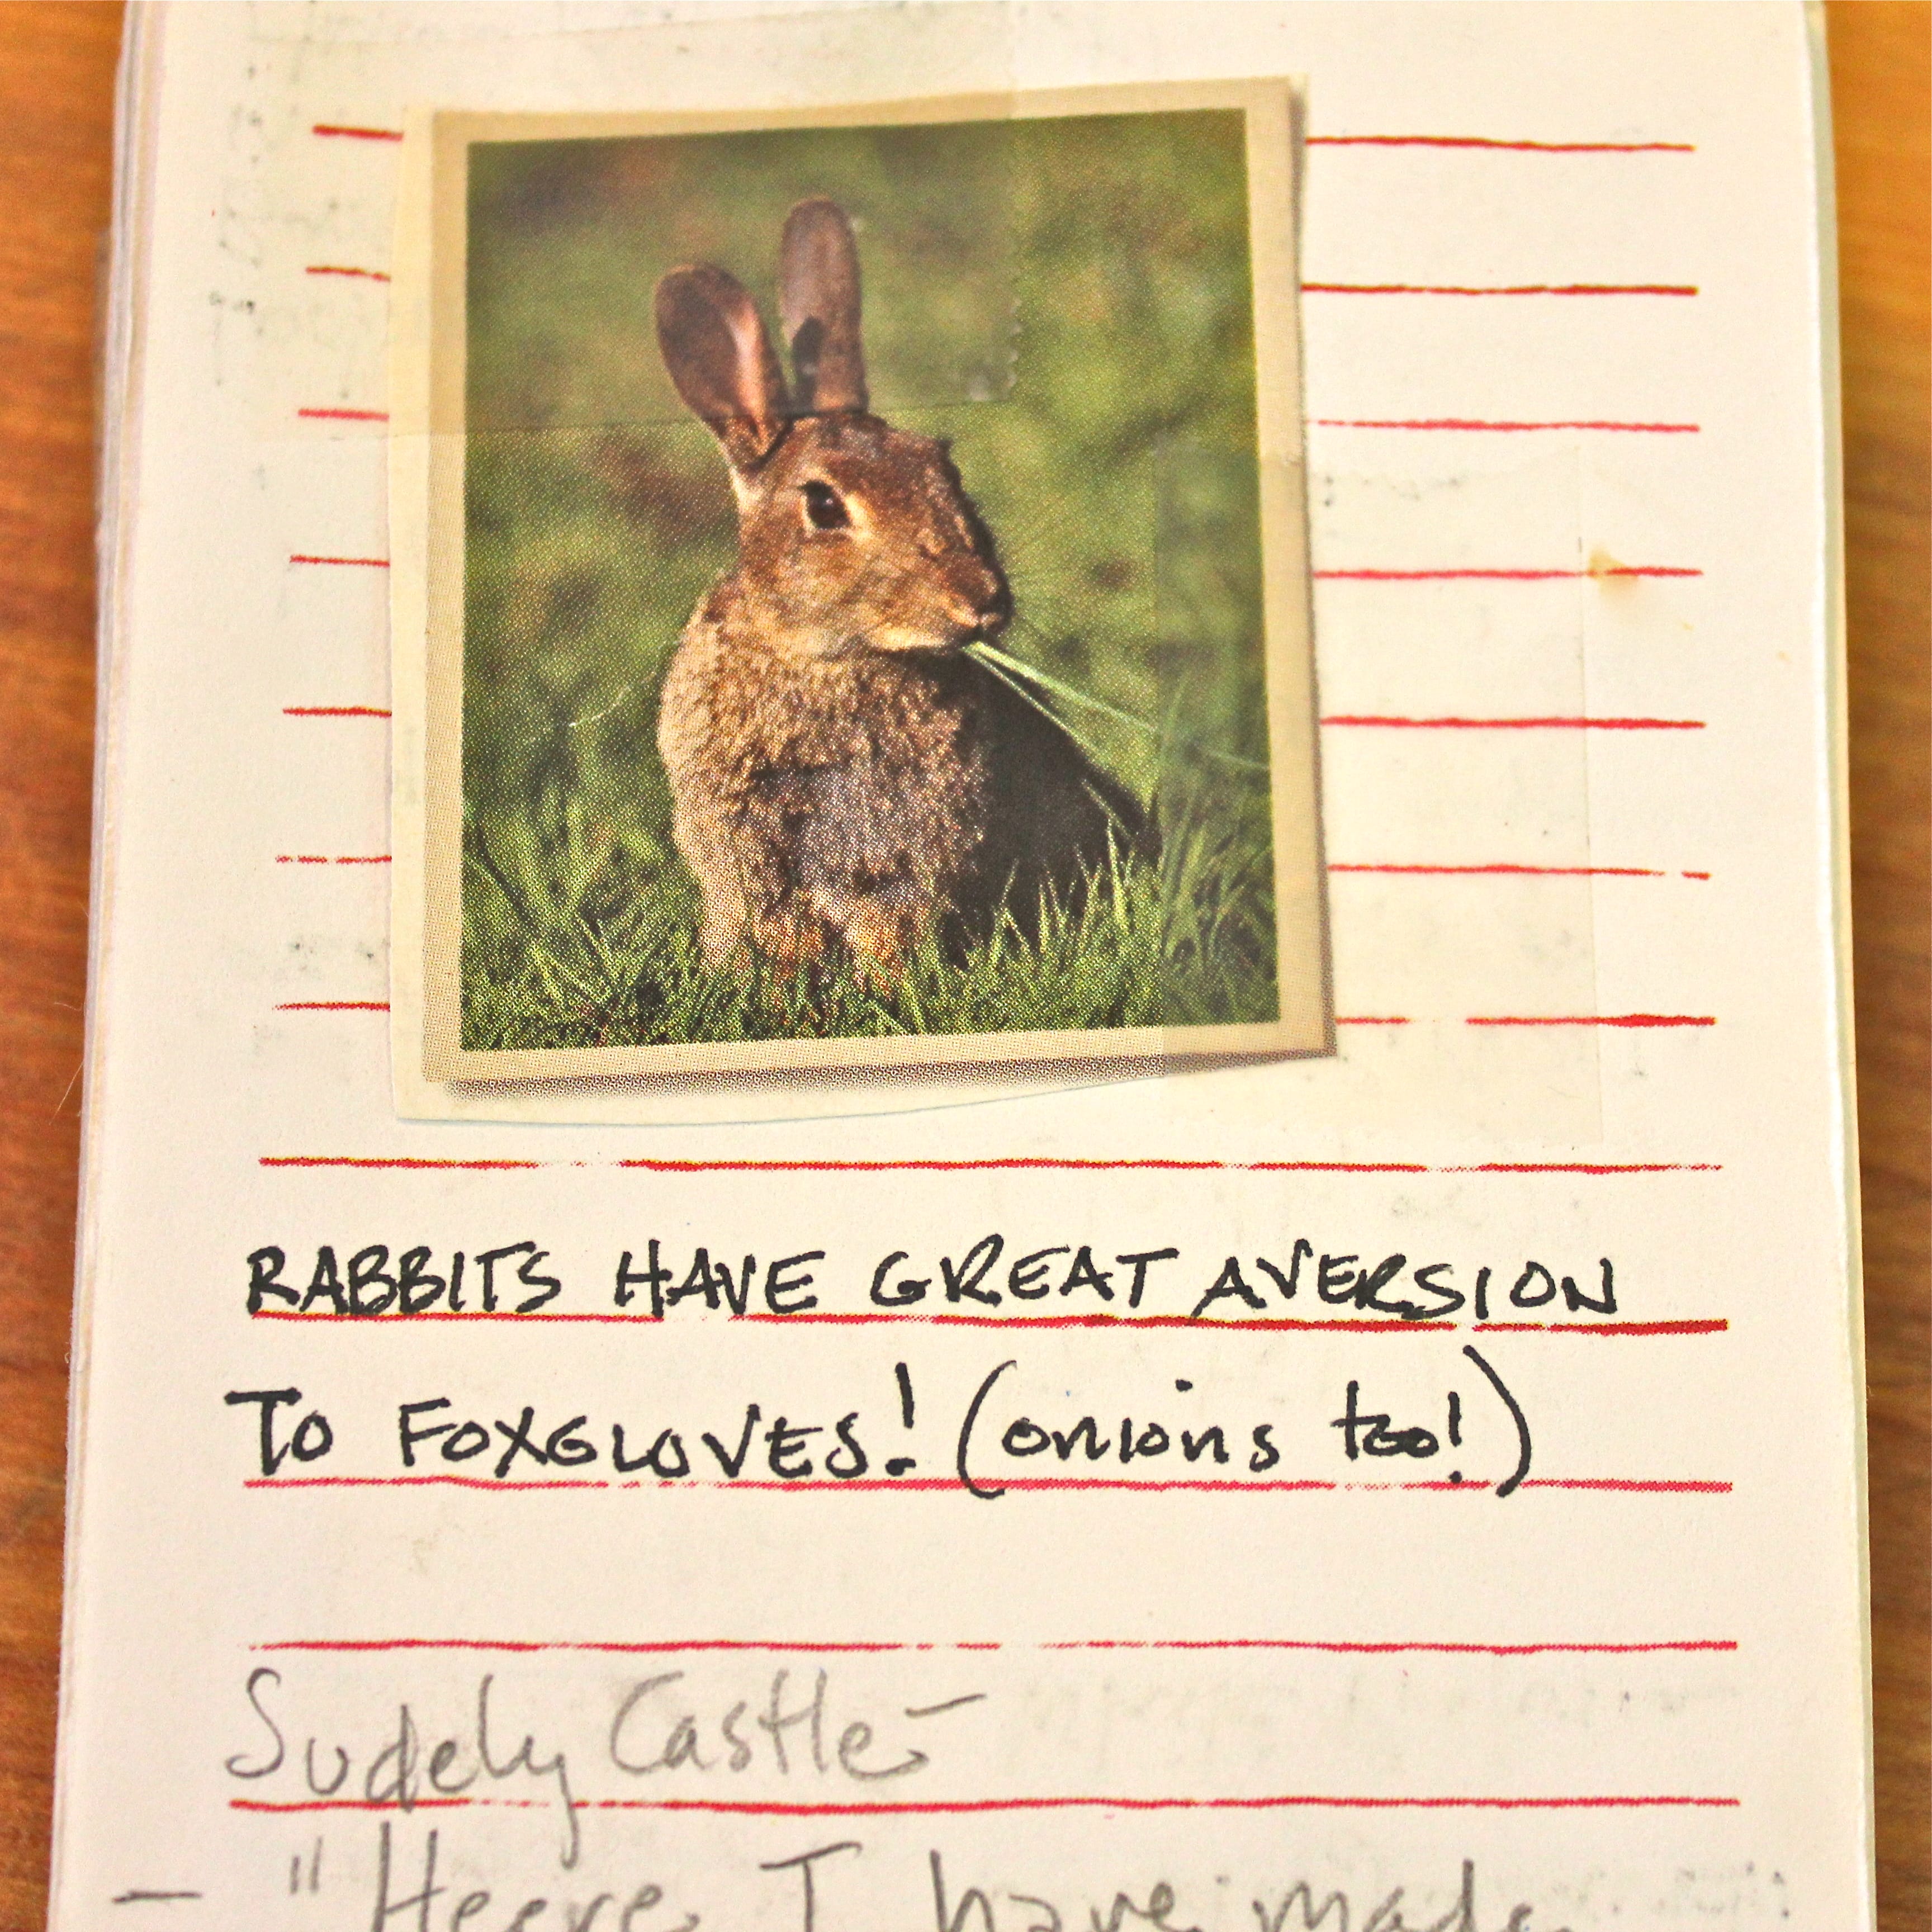 RABBITS HAVE GREAT AVERSION
TO FOXGLOVES! (onions too!)
Sudely Castle -
- "Heere I have made